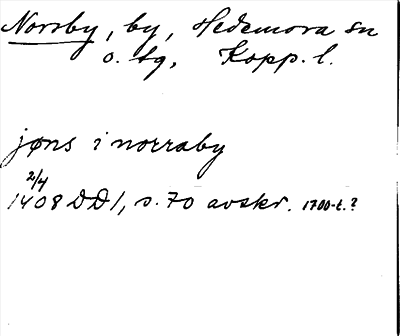 Norrby, by, Hedemora sn
o. tg, Kopp. l.
jøns i norraby
2/4
1408 DD1, s. 70 avskr. 1700-t.?